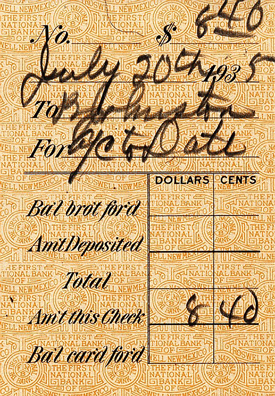 No. $ 8 40
July 20th 1935
To B Johnston
For a/c to Date
DOLLARS CENTS
Bal brot for'd
Am't Deposited
Total
Am't this Check 8 40
Bal card for'd